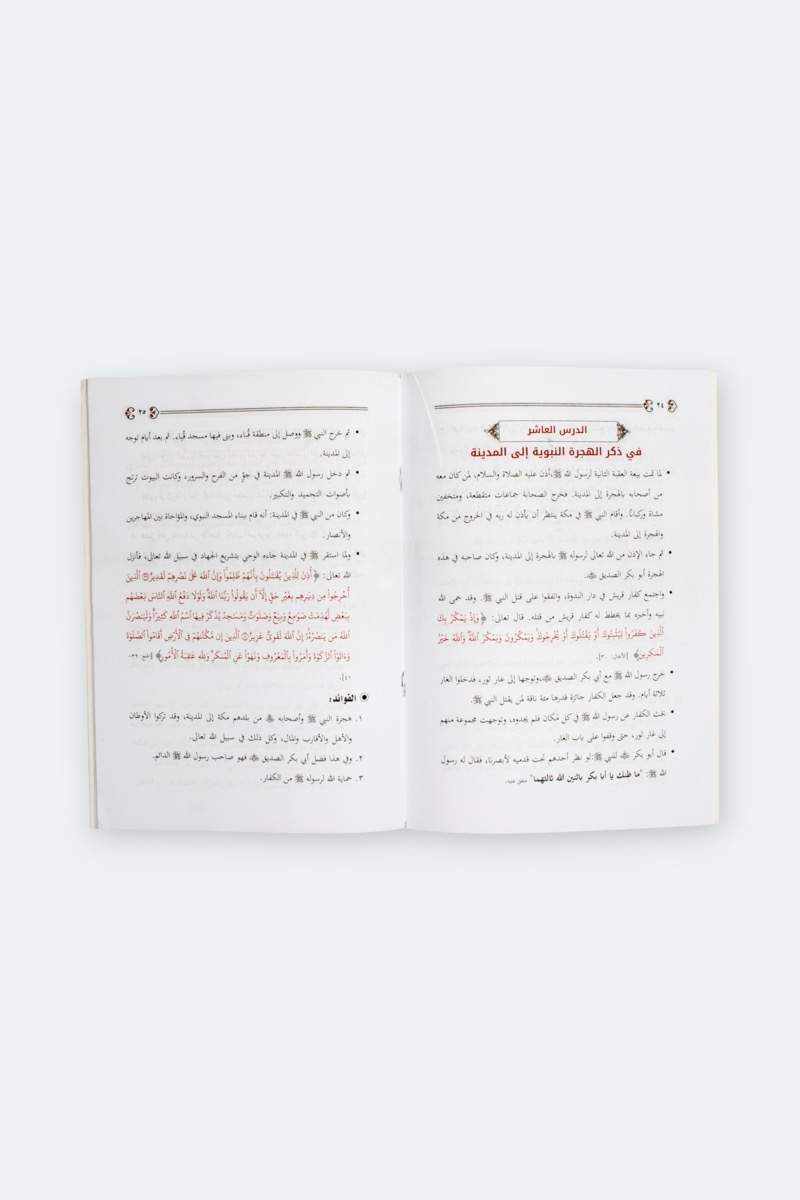 ٢٤
الدرس العاشر
في ذكر الهجرة النبوية إلى المدينة
• لما تمت بيعة العقبة الثانية لرسول الله ﷺ،أذن عليه الصلاة والسلام، لمن كان معه
من أصحابه بالهجرة إلى المدينة. فخرج الصحابة جماعات متقطعة، ومتخفين
مشاة وركبانًا. وأقام النبي ﷺ في مكة ينتظر أن يأذن له ربه في الخروج من مكة
والهجرة إلى المدينة.
• ثم جاء الإذن من الله تعالى لرسوله ﷺ بالهجرة إلى المدينة، وكان صاحبه في هذه
الهجرة أبو بكر الصديق ﷺ.
• واجتمع كفار قريش في دار الندوة، واتفقوا على قتل النبي ﷺ. وقد حمى الله
نبيه وأخبره بما يخطط له كفار قريش من قتله. قال تعالى: ﴿وَإِذْ يَمْكُرُ بِكَ
ٱلَّذِينَ كَفَرُواْ لِيُثْبِتُوكَ أَوْ يَقْتُلُوكَ أَوْ يُخْرِجُوكَ وَيَمْكُرُونَ وَيَمْكُرُ ٱللَّهُ وَٱللَّهُ خَيْرُ
ٱلْمَٰكِرِينَ﴾ [الأنفال: ٣٠].
• خرج رسول الله ﷺ مع أبي بكر الصديق ،وتوجها إلى غار ثور، فدخلوا الغار
ثلاثة أيام. وقد جعل الكفار جائزة قدرها مئة ناقة لمن يقتل النبي ﷺ.
• بحث الكفار عن رسول الله ﷺ في كل مكان فلم يجدوه، وتوجهت مجموعة منهم
إلى غار ثور، حتى وقفوا على باب الغار.
• قال أبو بكر للنبي ﷺ:لو نظر أحدهم تحت قدميه لأبصرنا، فقال له رسول
الله ﷺ: "ما ظنك يا أبا بكر باثنين الله ثالثهما" متفق عليه.
٢٥
• ثم خرج النبي ﷺ ووصل إلى منطقة قُباء، وبنى فيها مسجد قُباء. ثم بعد أيام توجه
إلى المدينة.
• ثم دخل رسول الله ﷺ المدينة في جوٍّ من الفرح والسرور، وكانت البيوت ترتج
بأصوات التحميد والتكبير.
• وكان من النبي ﷺ في المدينة: أنه قام ببناء المسجد النبوي، والمؤاخاة بين المهاجرين
والأنصار.
• ولما استقر ﷺ في المدينة جاءه الوحي بتشريع الجهاد في سبيل الله تعالى، فأنزل
الله تعالى: ﴿أُذِنَ لِلَّذِينَ يُقَٰتَلُونَ بِأَنَّهُمْ ظُلِمُواْ وَإِنَّ ٱللَّهَ عَلَىٰ نَصْرِهِمْ لَقَدِيرٌ ٱلَّذِينَ
أُخْرِجُواْ مِن دِيَٰرِهِم بِغَيْرِ حَقٍّ إِلَّآ أَن يَقُولُواْ رَبُّنَا ٱللَّهُ وَلَوْلَا دَفْعُ ٱللَّهِ ٱلنَّاسَ بَعْضَهُم
بِبَعْضٍ لَّهُدِّمَتْ صَوَٰمِعُ وَبِيَعٌ وَصَلَوَٰتٌ وَمَسَٰجِدُ يُذْكَرُ فِيهَا ٱسْمُ ٱللَّهِ كَثِيرًا وَلَيَنصُرَنَّ
ٱللَّهُ مَن يَنصُرُهُۥٓ إِنَّ ٱللَّهَ لَقَوِىٌّ عَزِيزٌ ٱلَّذِينَ إِن مَّكَّنَّٰهُمْ فِى ٱلْأَرْضِ أَقَامُواْ ٱلصَّلَوٰةَ
وَءَاتَوُاْ ٱلزَّكَوٰةَ وَأَمَرُواْ بِٱلْمَعْرُوفِ وَنَهَوْاْ عَنِ ٱلْمُنكَرِ وَلِلَّهِ عَٰقِبَةُ ٱلْأُمُورِ﴾ [الحج: ٣٩-
٤١].
الفوائد:
١. هجرة النبي ﷺ وأصحابه من بلدهم مكة إلى المدينة، وقد تركوا الأوطان
والأهل والأقارب والمال، وكل ذلك في سبيل الله تعالى.
٢. وفي هذا فضل أبي بكر الصديق فهو صاحب رسول الله ﷺ الدائم.
٣. حماية الله لرسوله ﷺ من الكفار.